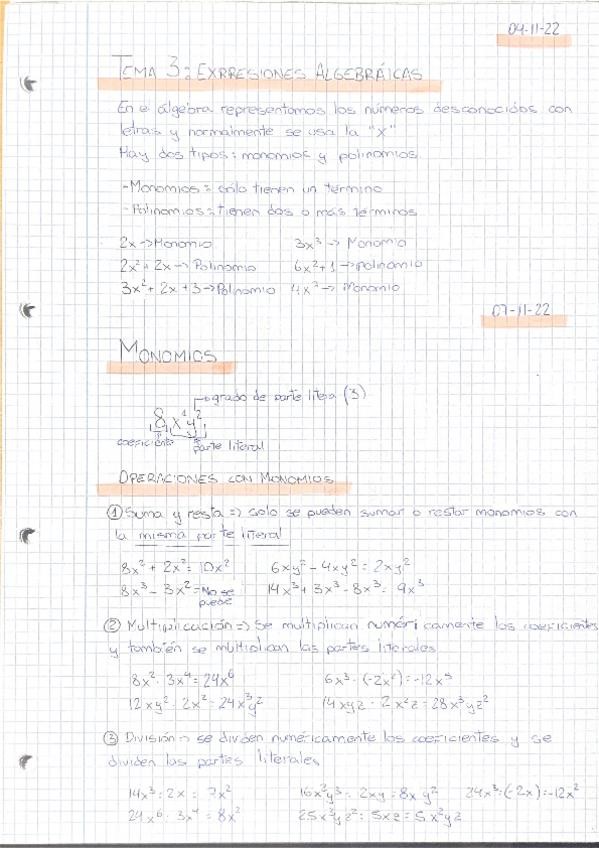 04-11-22
TEMA 3: EXPRESIONES ALGEBRÁICAS
En el álgebra representamos los números desconocidos con
letras y normalmente se usa la "x"
Hay dos tipos: monomios y polinomios
- Monomios = sólo tienen un término
- Polinomios = tienen dos o más términos
2x -> Monomio 3x³ -> Monomio
2x² + 2x -> Polinomio 6x² + 1 -> polinomio
3x² + 2x + 3 -> Polinomio 4x² -> Monomio
07-11-22
MONOMIOS
grado de parte litera (3)
8x¹y²
coeficiente parte literal
OPERACIONES CON MONOMIOS
① Suma y resta => solo se pueden sumar o restar monomios con
la misma parte literal
8x² + 2x² = 10x² 6xy² - 4xy² = 2xy²
8x³ - 3x² = No se puede 14x³ + 3x³ - 8x³ = 9x³
② Multiplicación => Se multiplican numéricamente los coeficientes
y también se multiplican las partes literales
8x² · 3x⁴ = 24x⁶ 6x³ · (-2x²) = -12x⁵
12xy² · 2x² = 24x³y² 14xyz · 2x²z = 28x³yz²
③ División -> se dividen numéricamente los coeficientes y se
dividen las partes literales
14x³ : 2x = 7x² 16x²y³ : 2xy = 8xy² 24x³ : (-2x) = -12x²
24x⁶ : 3x⁴ = 8x² 25x³yz² : 5xz = 5x²yz